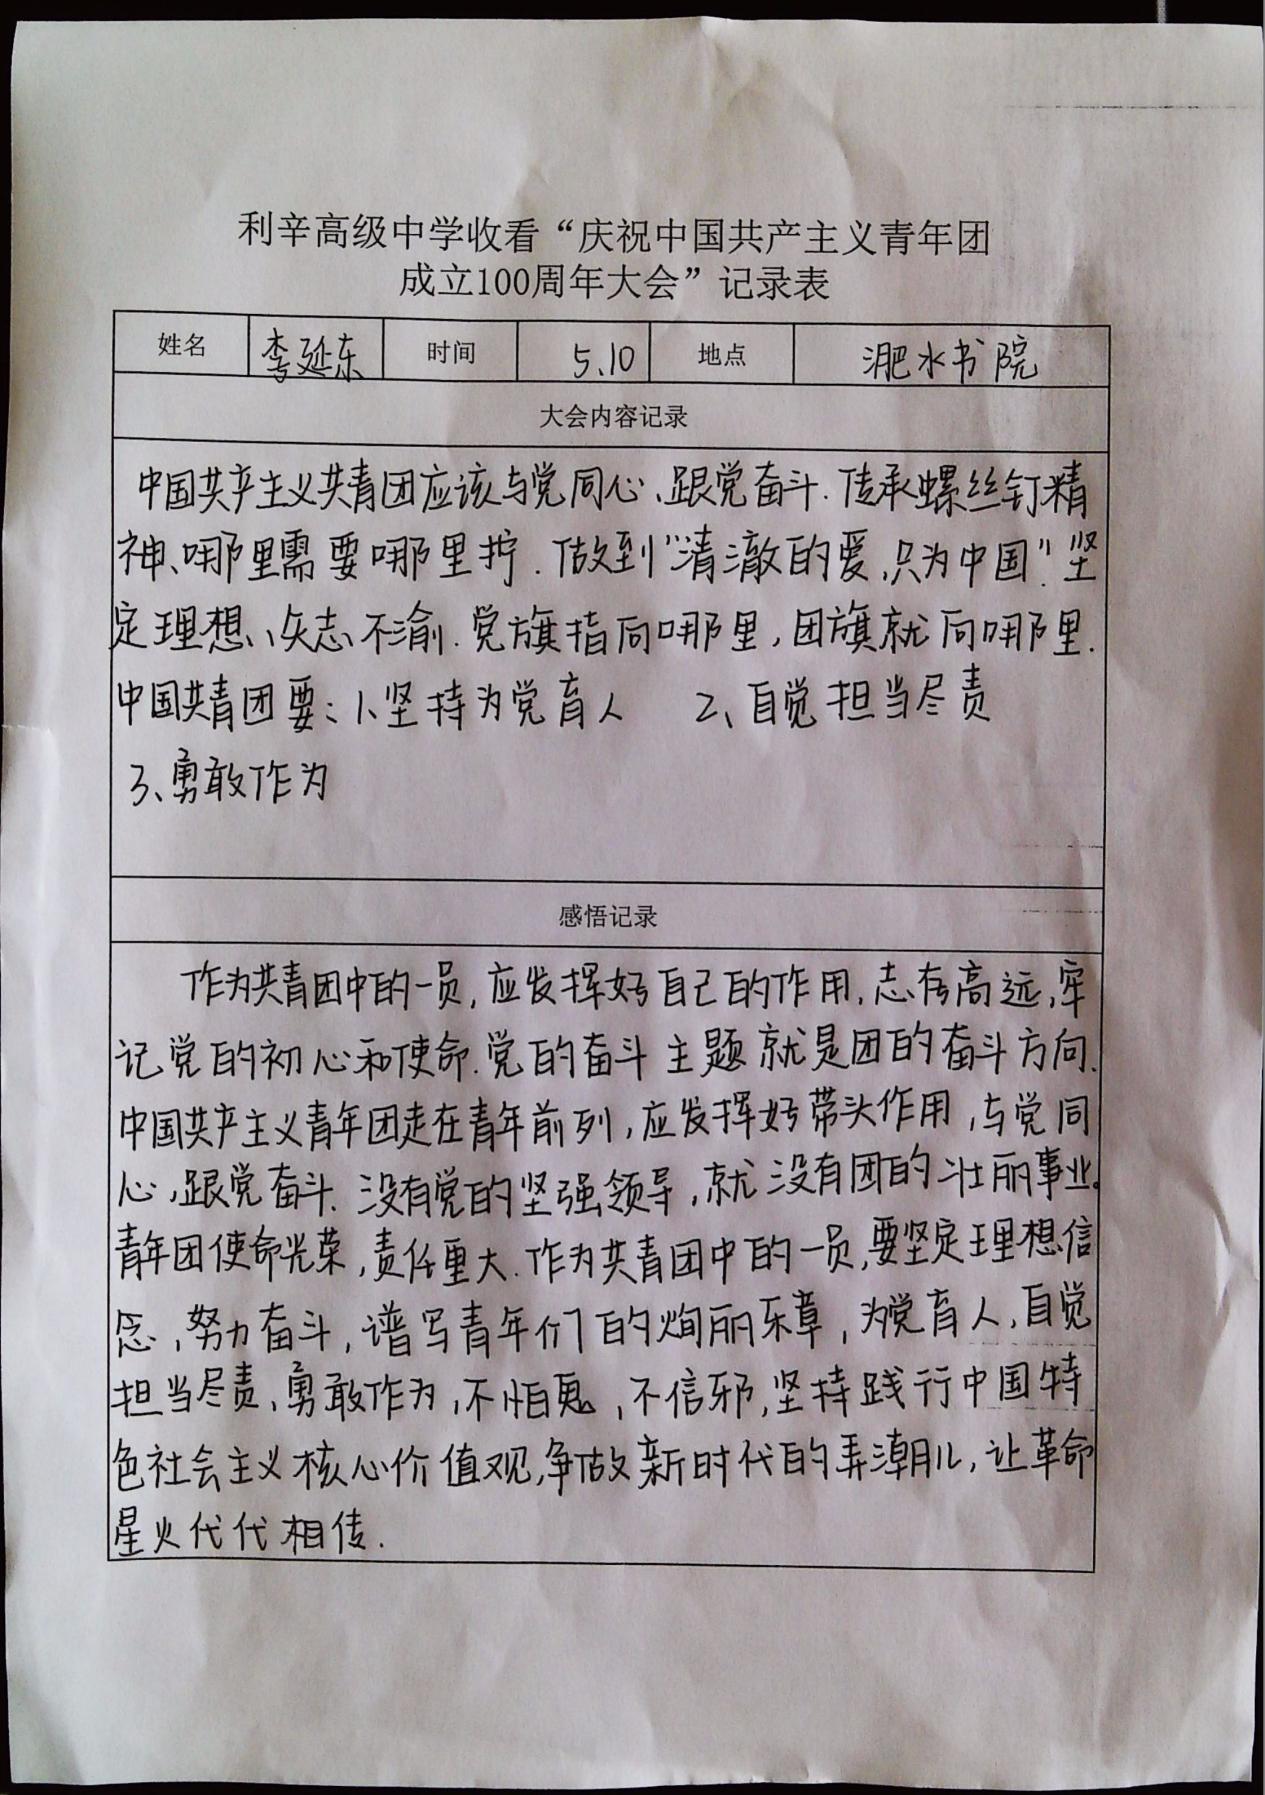 利辛高级中学收看“庆祝中国共产主义青年团
成立100周年大会”记录表
姓名 李延东 时间 5.10 地点 淝水书院
大会内容记录
中国共产主义共青团应该与党同心、跟党奋斗.传承螺丝钉精
神、哪里需要哪里拧.做到“清澈的爱,只为中国”.坚
定理想、矢志不渝.党旗指向哪里,团旗就向哪里.
中国共青团要:1、坚持为党育人 2、自觉担当尽责
3、勇敢作为
感悟记录
作为共青团中的一员,应发挥好自己的作用,志存高远,牢
记党的初心和使命.党的奋斗主题就是团的奋斗方向.
中国共产主义青年团走在青年前列,应发挥好带头作用,与党同
心,跟党奋斗.没有党的坚强领导,就没有团的壮丽事业.
青年团使命光荣,责任重大.作为共青团中的一员,要坚定理想信
念,努力奋斗,谱写青年们的炳丽乐章,为党育人,自觉
担当尽责,勇敢作为,不怕鬼,不信邪,坚持践行中国特
色社会主义核心价值观,争做新时代的弄潮儿,让革命
星火代代相传.